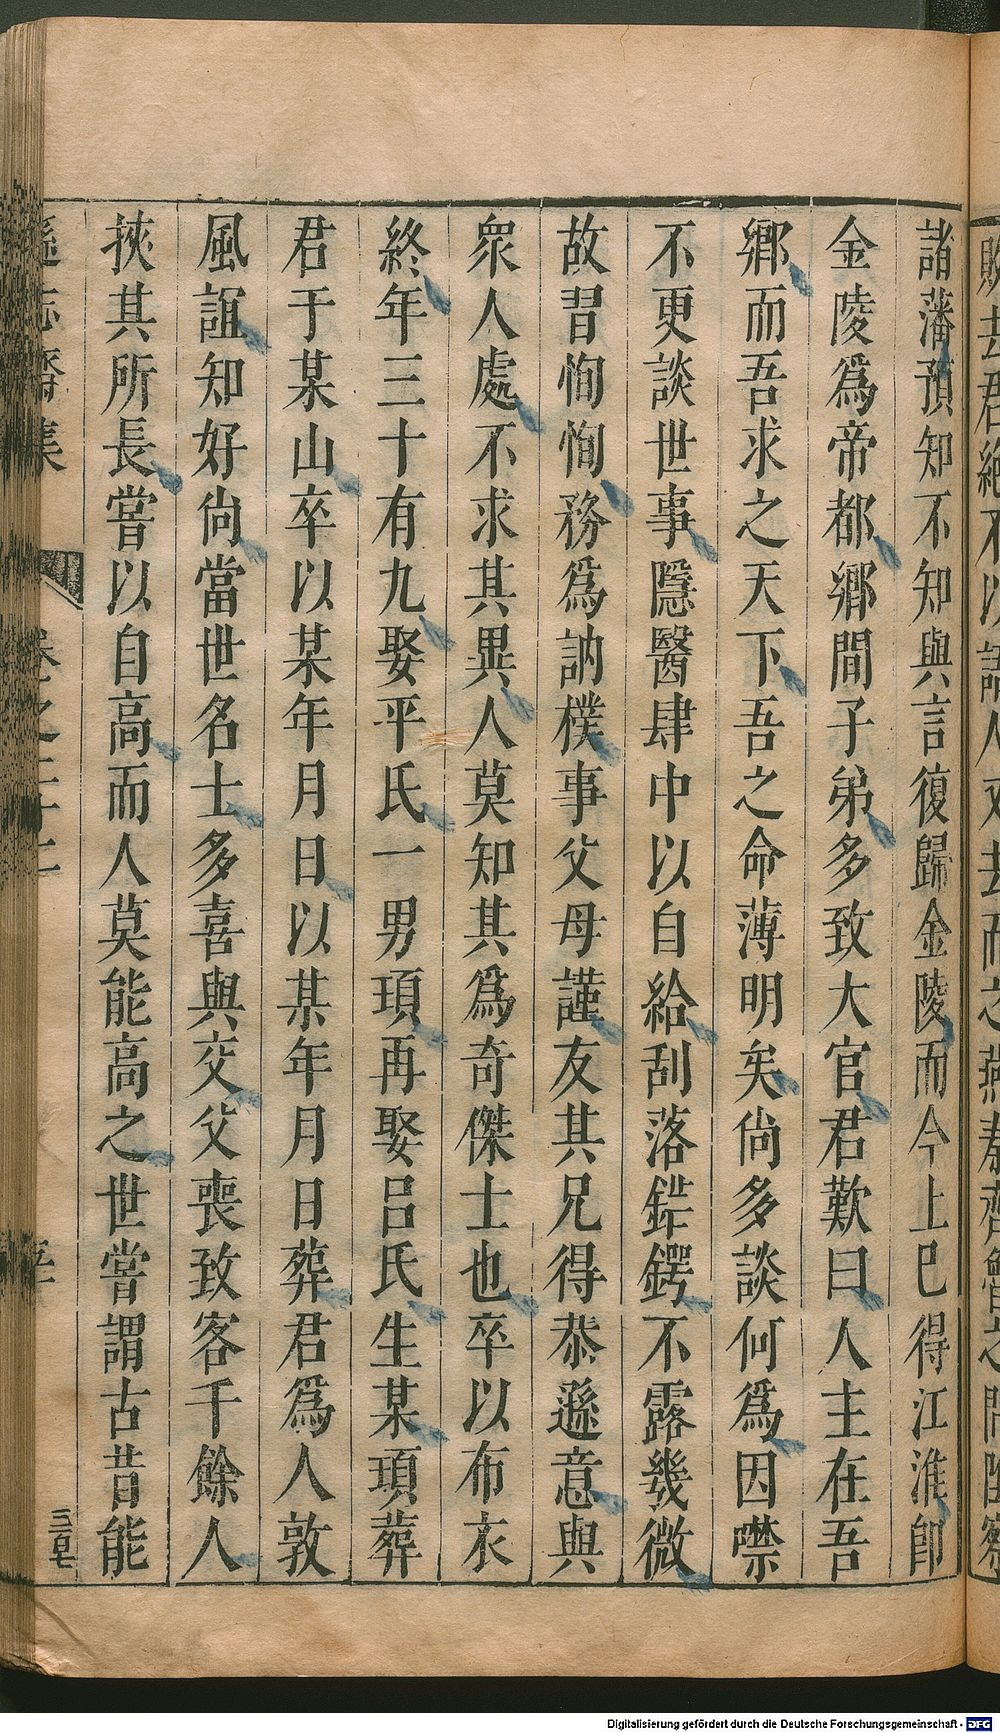 諸藩預知不知與言復歸金陵而今上巳得江淮卽
金陵爲帝都鄉間子弟多致大官君歎曰人主在吾
鄉而吾求之天下吾之命薄明矣尙多談何爲因噤
不更談世事隱醫肆中以自給刮落銋鍔不露幾微
故習恂恂務爲訥樸事父母謹友其兄得恭遜意與
衆人處不求其異人莫知其爲奇傑士也卒以布衣
終年三十有九娶平氏一男頊再娶呂氏生某頊葬
君于某山卒以某年月日以某年月日葬君爲人敦
風誼知好尙當世名士多喜與交父喪致客千餘人
挾其所長嘗以自高而人莫能高之世嘗謂古昔能
遜志齋集
Digitalisierung gefördert durch die Deutsche Forschungsgemeinschaft - DFG